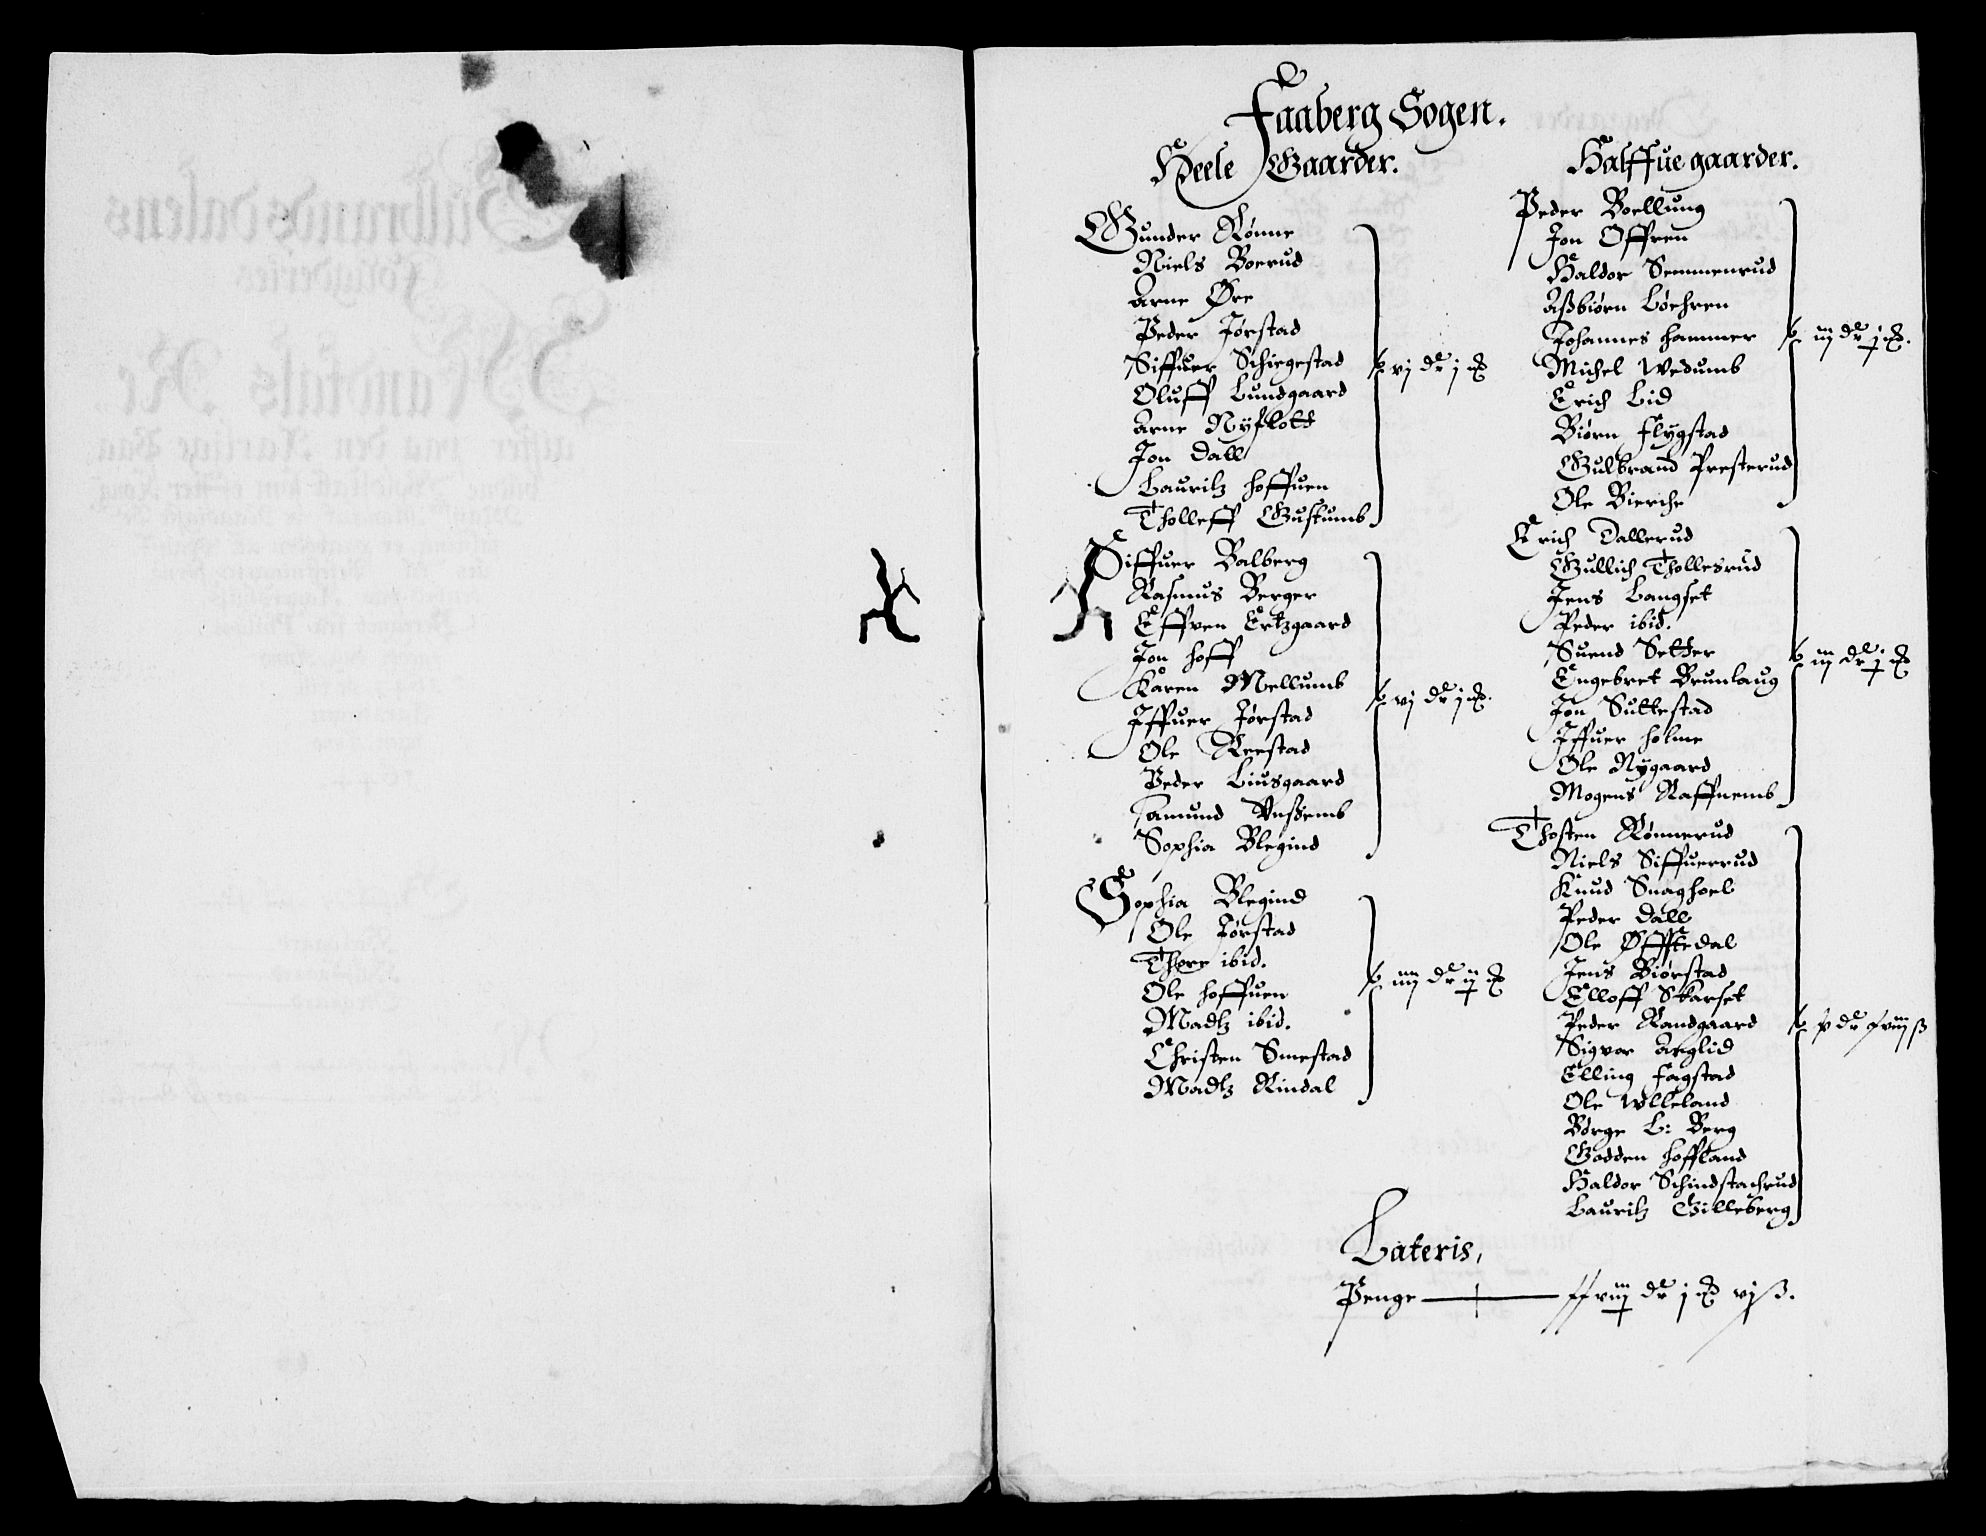 Faaberg Sogen.
Heele Gaarder.
Gunder Rønne
Niels Boerud
Arne Øre
Peder Jørstad
Siffuer Schiegestad
Oluff Lundgaard
Arne Nyflott
Jon Dall
Lauritz Hoffuen
Tholleff Gustumb
vj dr j
Siffuer Balberg
Rasmus Berger
Effven Ertzgaard
Jon Hoff
Karen Mellumb
Iffuer Jørstad
Ole Reestad
Peder Liusgaard
Amund
Sophia Blegind
vj dr j
Sophia Blegind
Ole Jørstad
Thore ibid.
Ole Hoffuen
Madtz ibid.
Christen Smestad
Madtz Rindal
iiij dr ij
Halffue gaarder.
Peder Boellung
Jon Offren
Haldor Semmenrud
Aßbiørn Løehren
Johannes Hammer
Michel Wedumb
Erich Lid
Biørn Flygstad
Gulbrand Presterud
Ole Bierche
iij dr j
Erich Dallerud
Gullich Thollesrud
Jens Langset
Peder ibid.
Suend Setter
Engebret Brunlaug
Jon Suttestad
Iffuer Holme
Ole Nygaard
Mogens Raffnemb
iij dr j
Thosten Rønnerud
Niels Siffuerrud
Knud Snaghoel
Peder Dall
Ole Øfftedal
Jens Biørstad
Elloff Skarset
Peder Randgaard
Sigvor Aeglid
Elling Fagstad
Ole Ulleland
Børge L: Berg
Gadden Hoffland
Haldor Schindstachrud
Lauritz Gilleberg
dr xviij ß
Lateris,
Penge xxviij dr j vj ß.